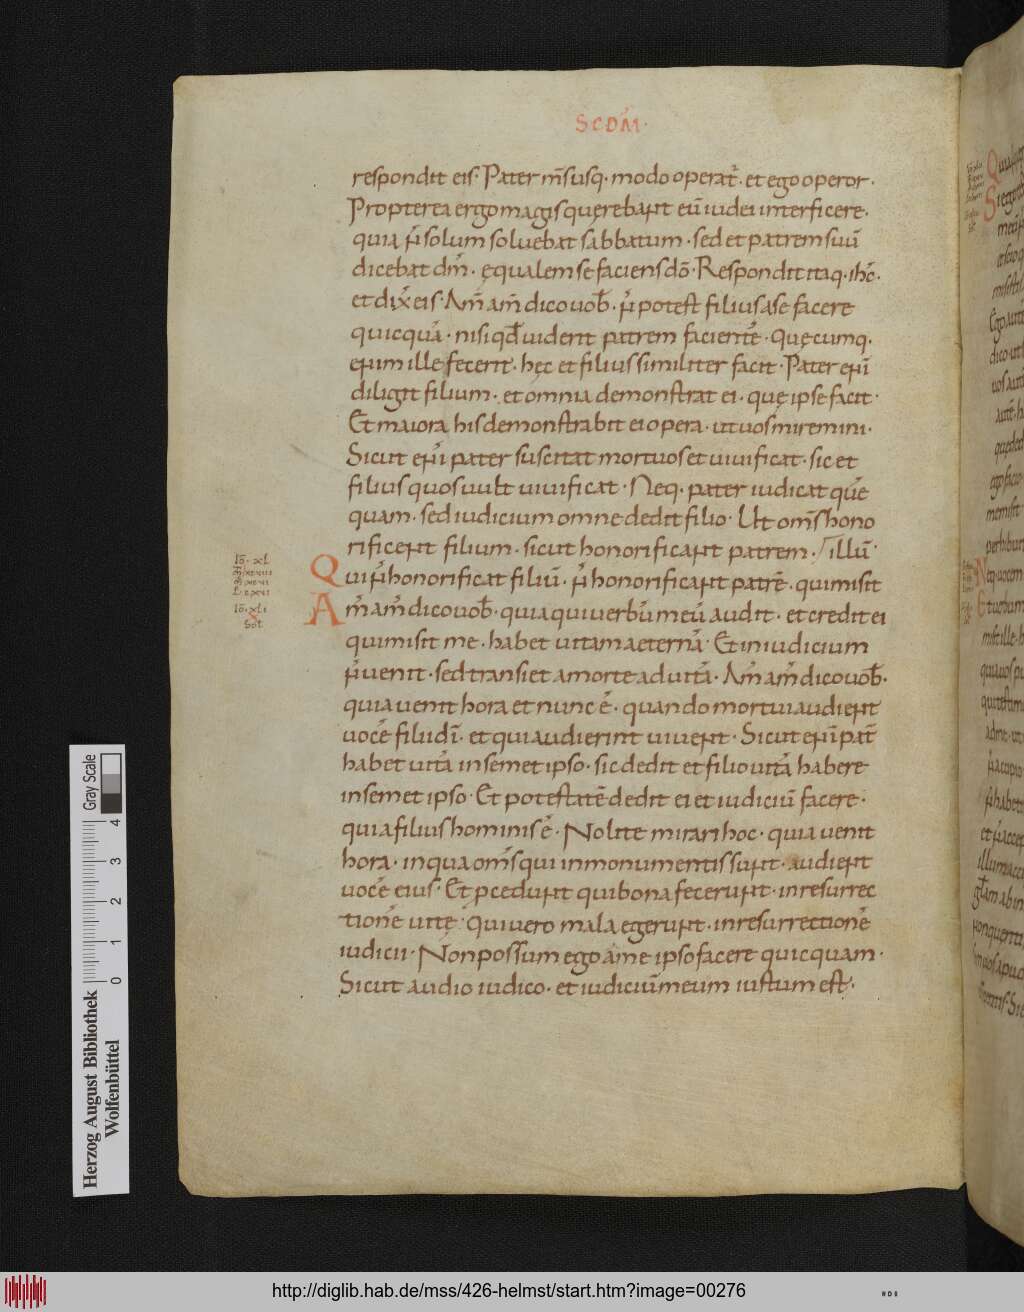 SCDM̄·
respondit eis· Pater m̄ susq· modo operat̄· et ego operor·
Propterea ergo magis querebant eū iudei interficere·
quia n̄ solum soluebat sabbatum· sed et patrem suū
dicebat dm̄· ęqualem se faciens dō· Respondit itaq· ihc̄·
et dix̄ eis· Am̄ am̄ dico uob̄· n̄ potest filius a se facere
quicquā· nisi qd̄ uiderit patrem facientē· Quęcumq·
enim ille fecerit· hęc et filius similiter facit· Pater enī
diligit filium· et omnia demonstrat ei· quę ipse facit·
Et maiora his demonstrabit ei opera· ut uos miremini·
Sicut enī pater suscitat mortuos et uiuificat· sic et
filius quos uult uiuificat· Neq· pater iudicat quē
quam· sed iudicium omne dedit filio· Ut om̄s hono
rificent filium· sicut honorificant patrem· / illū·
Qui n̄ honorificat filiū· n̄ honorificant patrē· qui misit
Am̄ am̄ dico uob̄· quia qui uerbū meū audit· et credit ei
qui misit me· habet uitam aeternā· Et in iudicium
n̄ uenit· sed transiet a morte ad uitā· Am̄ am̄ dico uob̄·
quia uenit hora et nunc ē· quando mortui audient
uocē filii dī· et qui audierint uiuent· Sicut enī pat̄
habet uitā in semet ipso· sic dedit et filio uitā habere
in semet ipso· Et potestatē dedit ei et iudiciū facere·
quia filius hominis ē· Nolite mirari hoc· quia uenit
hora· in qua om̄s qui in monumentis sunt· audient
uocē eius· Et pcedunt qui bona fecerunt· in resurrec
tionē uitę· Qui uero mala egerunt· in resurrectionē
iudicii· Non possum ego a me ipso facere quicquam·
Sicut audio iudico· et iudiciū meum iustum est·
Iō· xl
Iō· xli
sol
Herzog August Bibliothek
Wolfenbüttel
0 1 2 3 4
Gray Scale
http://diglib.hab.de/mss/426-helmst/start.htm?image=00276